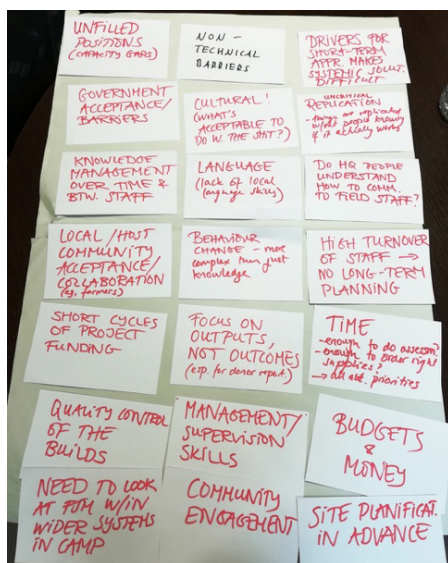 UNFILLED
POSITIONS
(CAPACITY GAPS)
NON-
TECHNICAL
BARRIERS
DRIVERS FOR
SHORT-TERM
APPR. MAKES
SYSTEMIC SOLUT.
DIFFICULT
GOVERNMENT
ACCEPTANCE/
BARRIERS
CULTURAL!
(WHAT'S
ACCEPTABLE TO
DO W. THE SHIT?)
UNCRITICAL
REPLICATION
- things are replicated
w/out people knowing
if it actually works
KNOWLEDGE
MANAGEMENT
OVER TIME &
BTW. STAFF
LANGUAGE
(lack of local
language skills)
DO HQ PEOPLE
UNDERSTAND
HOW TO COMM.
TO FIELD STAFF?
LOCAL/HOST
COMMUNITY
ACCEPTANCE/
COLLABORATION
(eg. farmers)
BEHAVIOUR
CHANGE - more
complex than just
knowledge
HIGH TURNOVER
OF STAFF →
NO LONG-TERM
PLANNING
SHORT CYCLES
OF PROJECT
FUNDING
FOCUS ON
OUTPUTS,
NOT OUTCOMES
(esp. for donor report.)
TIME
- enough to do assessm?
- enough to order right
supplies?
→ all abt. priorities
QUALITY CONTROL
OF THE
BUILDS
MANAGEMENT/
SUPERVISION
SKILLS
BUDGETS
&
MONEY
NEED TO LOOK
AT FSM W/IN
WIDER SYSTEMS
IN CAMP
COMMUNITY
ENGAGEMENT
SITE PLANIFICAT.
IN ADVANCE